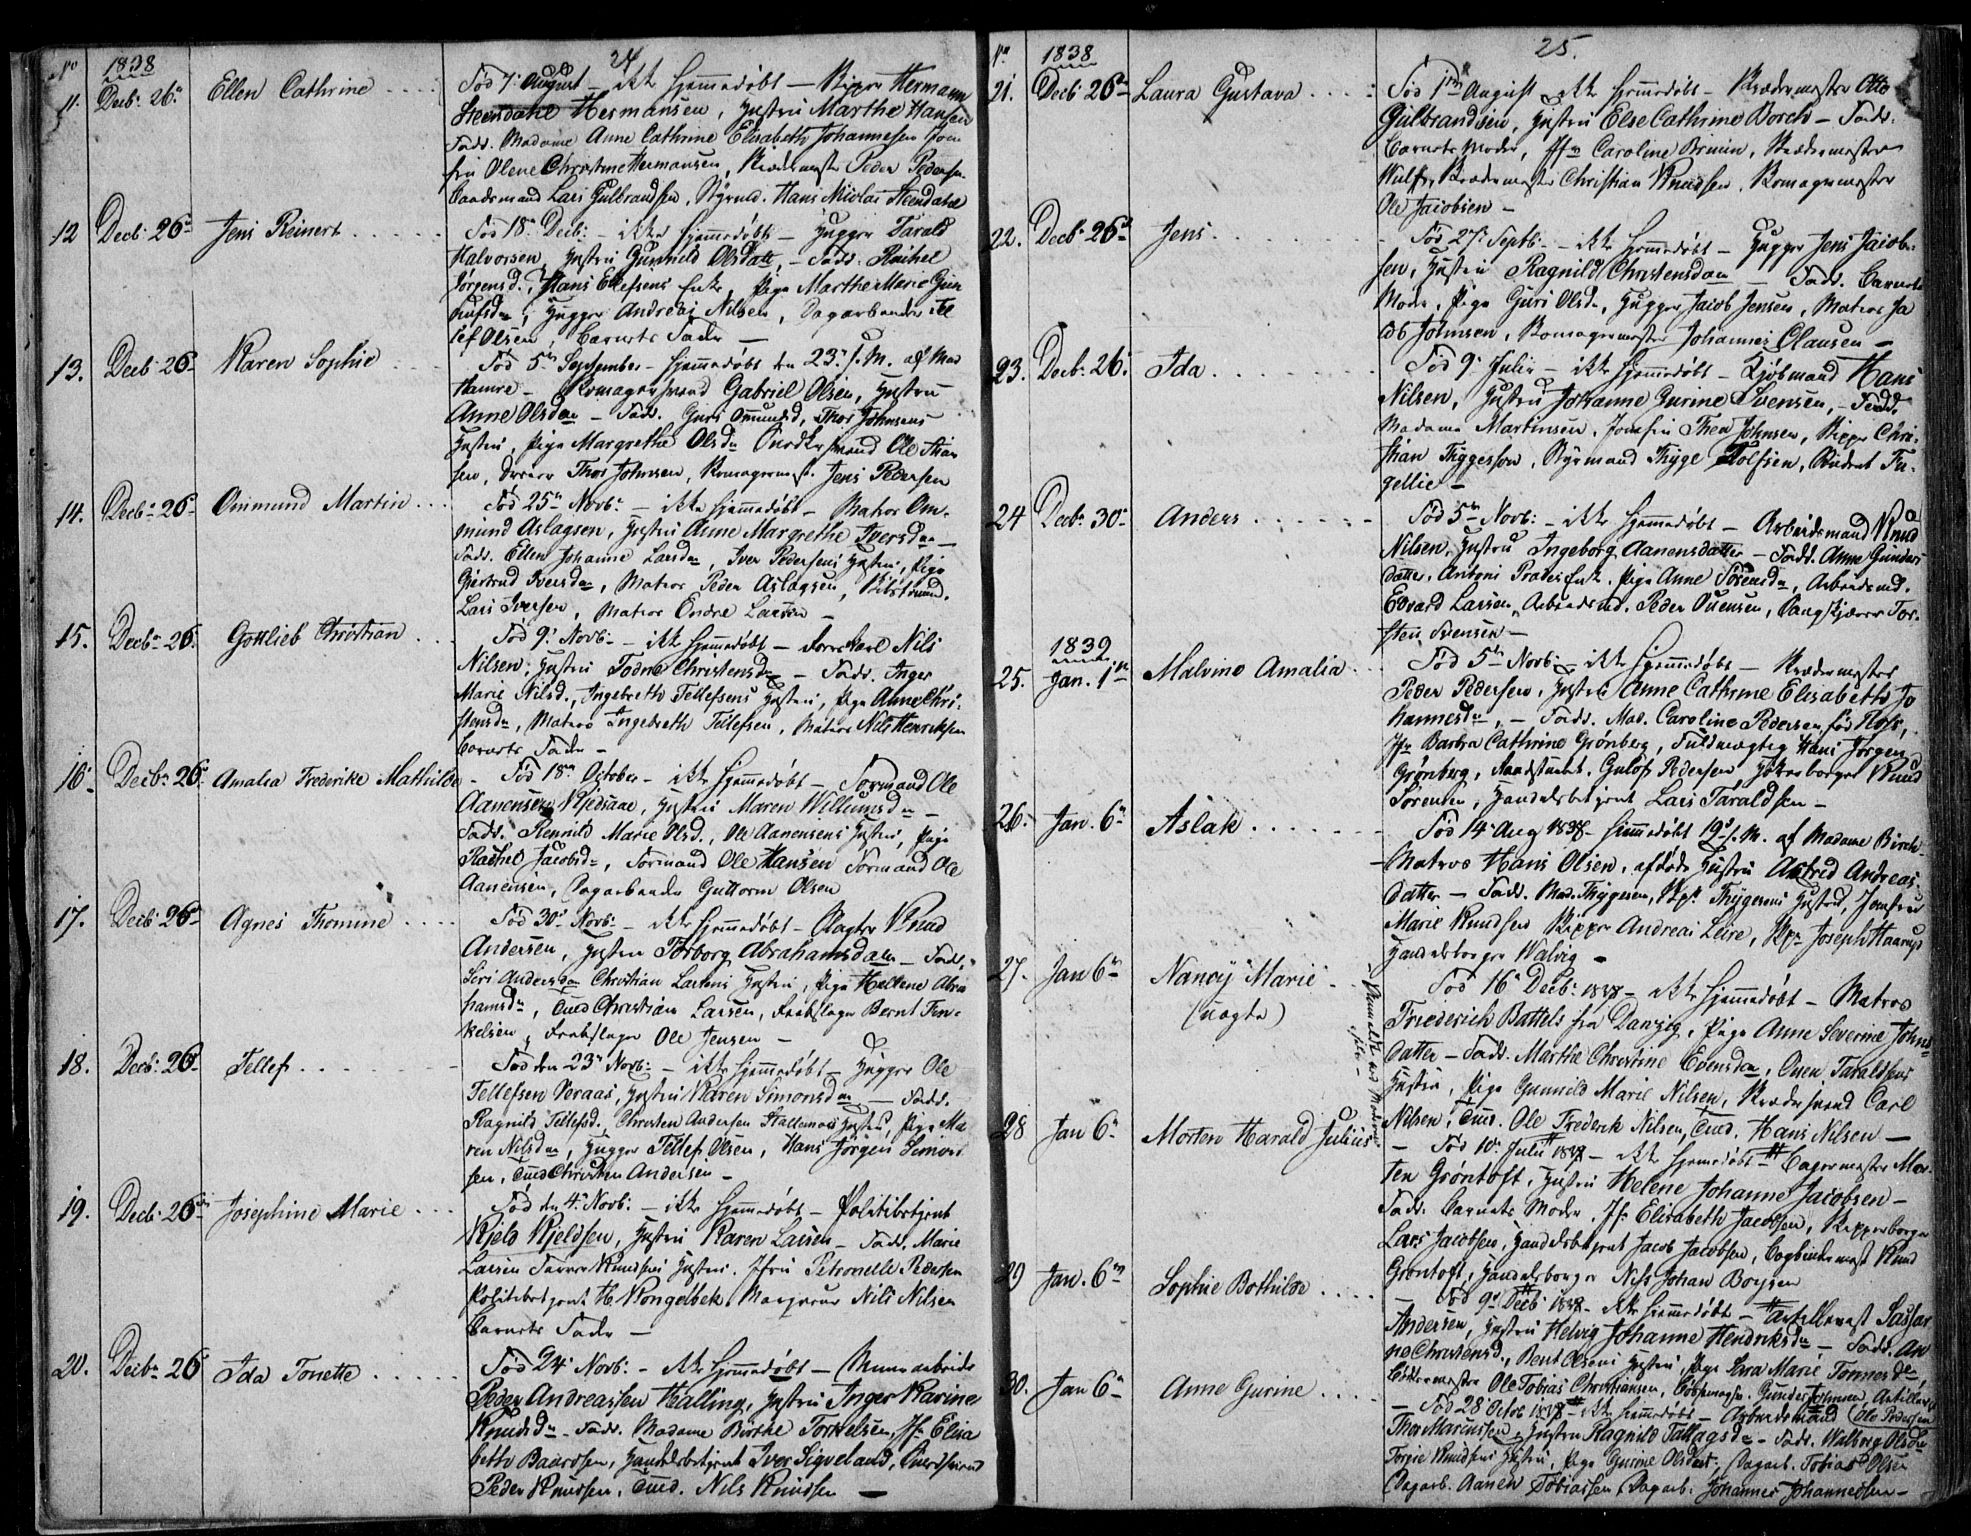 24
No 1838
11. Decb: 26n Ellen Cathrine
Fød 7. August – ikke hjemmedøbt – Skipper Hermann
Steensdahl Hermansen, Hustru Marthe Hansen
Fadd. Madame Anne Cathrine Elisabeth Johannesen Jom
fru Olene Christine Hermansen, Skrædermester Peder Pedersen
Lars Gulbrandsen, Styrmd. Hans Nicolai Steendahl
12 Decb: 26n Jens Reinert
Fød 18. Decb: – ikke hjemmedøbt – Hugger Tarald
Halvorsen, Hustru Gunnild Olsdatt. – Fadd. Rachel
Jørgensd., Hans Ellefsens Enke, Pige Marthe Marie Gun
dufsdr, Hugger Andreas Nilsen, Dagarbeider El
lef Olsen, Barnets Fader –
13. Decb: 26 Karen Sophie
Fød 5te September – hjemmedøbt den 23n s. M. af Mad
Hamre – Skomagersvend Gabriel Olsen, Hustru
Anne Olsdr – Fadd. Guri Omunsd, Thor Johnsens
Hustru, Pige Margrethe Olsdr Snedkersvend Ole Han
sen, Thor Johnsen, Skomagermest. Jens Pedersen
14. Decb: 26 Ommund Martin
Fød 25n Novb: – ikke hjemmedøbt – Matros Om-
mund Aslagsen, Hustru Anne Margrethe Iversdr –
Fadd. Ellen Johanne Larsdr, Iver Pedersens Hustru, Pige
Gjertrud Iversdr, Matros Peder Aslagsen,
Lars Iversen, Matros Endre Larsen –
15. Decb: 26. Gottlieb Christian
Fød 9. Novb: – ikke hjemmedøbt – Nils
Nilsen, Hustru Todne Christensdr – Fadd. Inger
Marie Nilsd., Ingebreth Tellefsens Hustru, Pige Anne Chri-
stensdr, Matros Ingebreth Tellefsen, Matros Nils Henriksen
Barnets Fader –
16. Decb: 26. Amalia Frederike Mathilde
Fød 18n October – ikke hjemmedøbt – Formand Ole
Aanensen Kjedsaae, Hustru Maren Willumsdr –
Fadd. Rennild Marie Olsd., Ole Aanensens Hustru, Pige
Rachel Jacobsdr, Formand Ole Hansen Formand Ole
Aanensen, Dagarbeider Guttorm Olsen
17. Decb: 26 Agnes Thomine
Fød 30. Novb: – ikke hjemmedøbt – Slagter Knud
Andersen, Hustru Torborg Abrahamsdatr – Fadd.
Siri Andersdr Christian Larsens Hustru, Pige Hellene Abra
hamsdr, Tmd Christian Larsen, Bernt Ter-
kelsen, Ole Jensen –
18. Decb: 26 Tellef
Fød den 23n Novb: – ikke hjemmedøbt – Hugger Ole
Tellefsen Veraas, Hustru Karen Simonsdr – Fadd.
Ragnild Tellefsd., Christen Andersen Hustru, Pige Ma
ren Nilsdr, Hugger Tellef Olsen, Hans Jørgen Simon
sen, Tmd Christen Andersen –
19. Decb: 26 Josephine Marie
Fød den 4. Novb: – ikke hjemmedøbt – Politibetjent
Kjeld Kjeldsen, Hustru Karen Larsen – Fadd. Marie
Larsen Knudsens Hustru. Jfru Petronelle Pedersen
Politibetjent H. Kongelbek, Nils Nilsen
Barnets Fader –
20. Decb: 26 Ida Tonette
Fød 24. Novb: – ikke hjemmedøbt –
Peder Andreassen Halling, Hustru Inger Karine
Knudsdr – Fadd. Madame Birthe Torkelsen, Jfr Elisa
beth Baarosen, Handelsbetjent Iver Sigveland,
Peder Knudsen, Tmd. Nils Knudsen –
25.
No 1838
21. Decb: 26n Laura Gustava
Fød 1ste August ikke hjemmedøbt – Skrædermester Otto
Gulbrandsen, Hustru Else Cathrine Borch – Fadd.
Barnets Moder, Jfr Caroline Bruun, Skrædermester
Wulf, Skrædermester Christian Knudsen, Skomagermester
Ole Jacobsen –
22. Decb: 26n Jens
Fød 27. Septb: – ikke hjemmedøbt – Hugger Jens Jacob-
sen, Hustru Ragnild Christensdatr – Fadd. Barnets
Moder, Pige Guri Olsd., Hugger Jacob Jensen, Matros Ja
cob Johnsen, Skomagermester Johannes Clausen –
23. Decb: 26. Ida
Fød 9. Julii – ikke hjemmedøbt – Kjøbmand Hans
Nilsen, Hustru Johanne Gurine Svensen, – Fadd.
Madame Martinsen, Jomfru Thea Johnsen, Skipper Chri-
stian Thygesson, Styrmand Thyge Tolfsen, Student Fu-
gellie –
24 Decb: 30. Anders
Fød 5te Novb: – ikke hjemmedøbt – Arbeidsmand Knud
Nilsen, Hustru Ingeborg Aanensdatter – Fadd. Anne Gunders
datter, Antoni Enke, Pige Anne Sørensdr, Arbeidsmd.
Edvard Lassen, Arbeidsmd. Peder Svensen, Tor-
sten Svensen –
1839
25. Jan. 1n Malvine Amalia
Fød 5te Novb: – ikke hjemmedøbt – Skrædermester
Peder Pedersen, Hustru Anne Cathrine Elisabeth Jo
hannesdr, – Fadd. Mad. Caroline Pedersen,
Jfr Barbra Cathrine Grønberg, Fuldmægtig Hans Jørgen
Grønberg, Pedersen Knud
Sørensen, Handelsbetjent Lars Taraldsen –
26. Jan. 6n Aslak
Fød 14. Aug 1838 – hjemmedøbt 19. s. M. af Madame Birch –
Matros Hans Olsen, afdøde Hustru Astrid Andreas-
datter – Fadd. Mad. Thygesen, Skp. Thygesens Hustru, Jomfru
Marie Knudsen Skipper Andreas Leire, Skpr Joseph Haarup
Handelsborger Walvig –
27. Jan 6n Nancy Marie
(uægte)
Fød 16n Decb: 1838 – ikke hjemmedøbt – Matros
Friederich Battels fra Danzig, Pige Anne Severine Johns
datter – Fadd. Marthe Christine Evensdr, Ouen Taraldsens
Hustru, Pige Gunnild Marie Nilsen, Skrædersvend Carl
Nilsen, Tmd. Ole Frederik Nilsen, Tmd. Hans Nilsen –
28 Jan 6n Morten Harald Julius
Fød 10. Julii 1838 – ikke hjemmedøbt – Bagermester Mor-
ten Grøntoft, Hustru Helene Johanne Jacobsen –
Fadd. Barnets Moder, Jfr Elisabeth Jacobsen, Skipperborger
Lars Jacobsen, Handelsbetjent Jacob Jacobsen, Bogbindermest Knud
Grøntoft, Handelsborger Nils Johan Boysen
29 Jan. 6n Sophie Bothilde
Fød 9. Decb 1838 – ikke hjemmedøbt –
Andersen, Hustru Helvig Johanne Hendriksdr – Fadd. An
ne Christensd., Bent Olsens Hustru, Pige Sara Marie Tønnesdr,
Ole Tobias Christiansen, Gunder Johnsen,
30. Jan 6n Anne Gurine
Fød 28 Octob 1838 – ikke hjemmedøbt – Arbeidsmand (Ole Pedersen
Thor Marcussen, Hustru Ragnild Tallagsdr – Fadd. Walborg Olsdr
Torgie Knudsens Hustru, Pige Gurine Olsdatr, Dagarb. Tobias Olsen
Dagarb. Aanen Tobiassen, Dagarb. Johannes Johannessen –